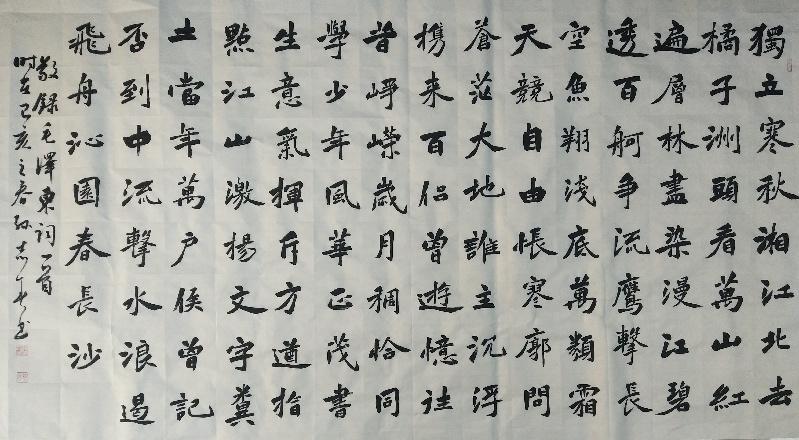 獨立寒秋湘江北去
橘子洲頭看萬山紅
遍層林盡染漫江碧
透百舸争流鹰擊長
空魚翔浅底萬類霜
天競自由悵寥廓問
蒼茫大地誰主沉浮
携来百侣曾遊憶往
昔崢嶸歲月稠恰同
學少年風華正茂書
生意氣揮斥方遒指
點江山激揚文字糞
土當年萬户侯曾記
否到中流擊水浪遏
飛舟沁園春長沙
敬録毛澤東詞一首
时在己亥之春孙志书